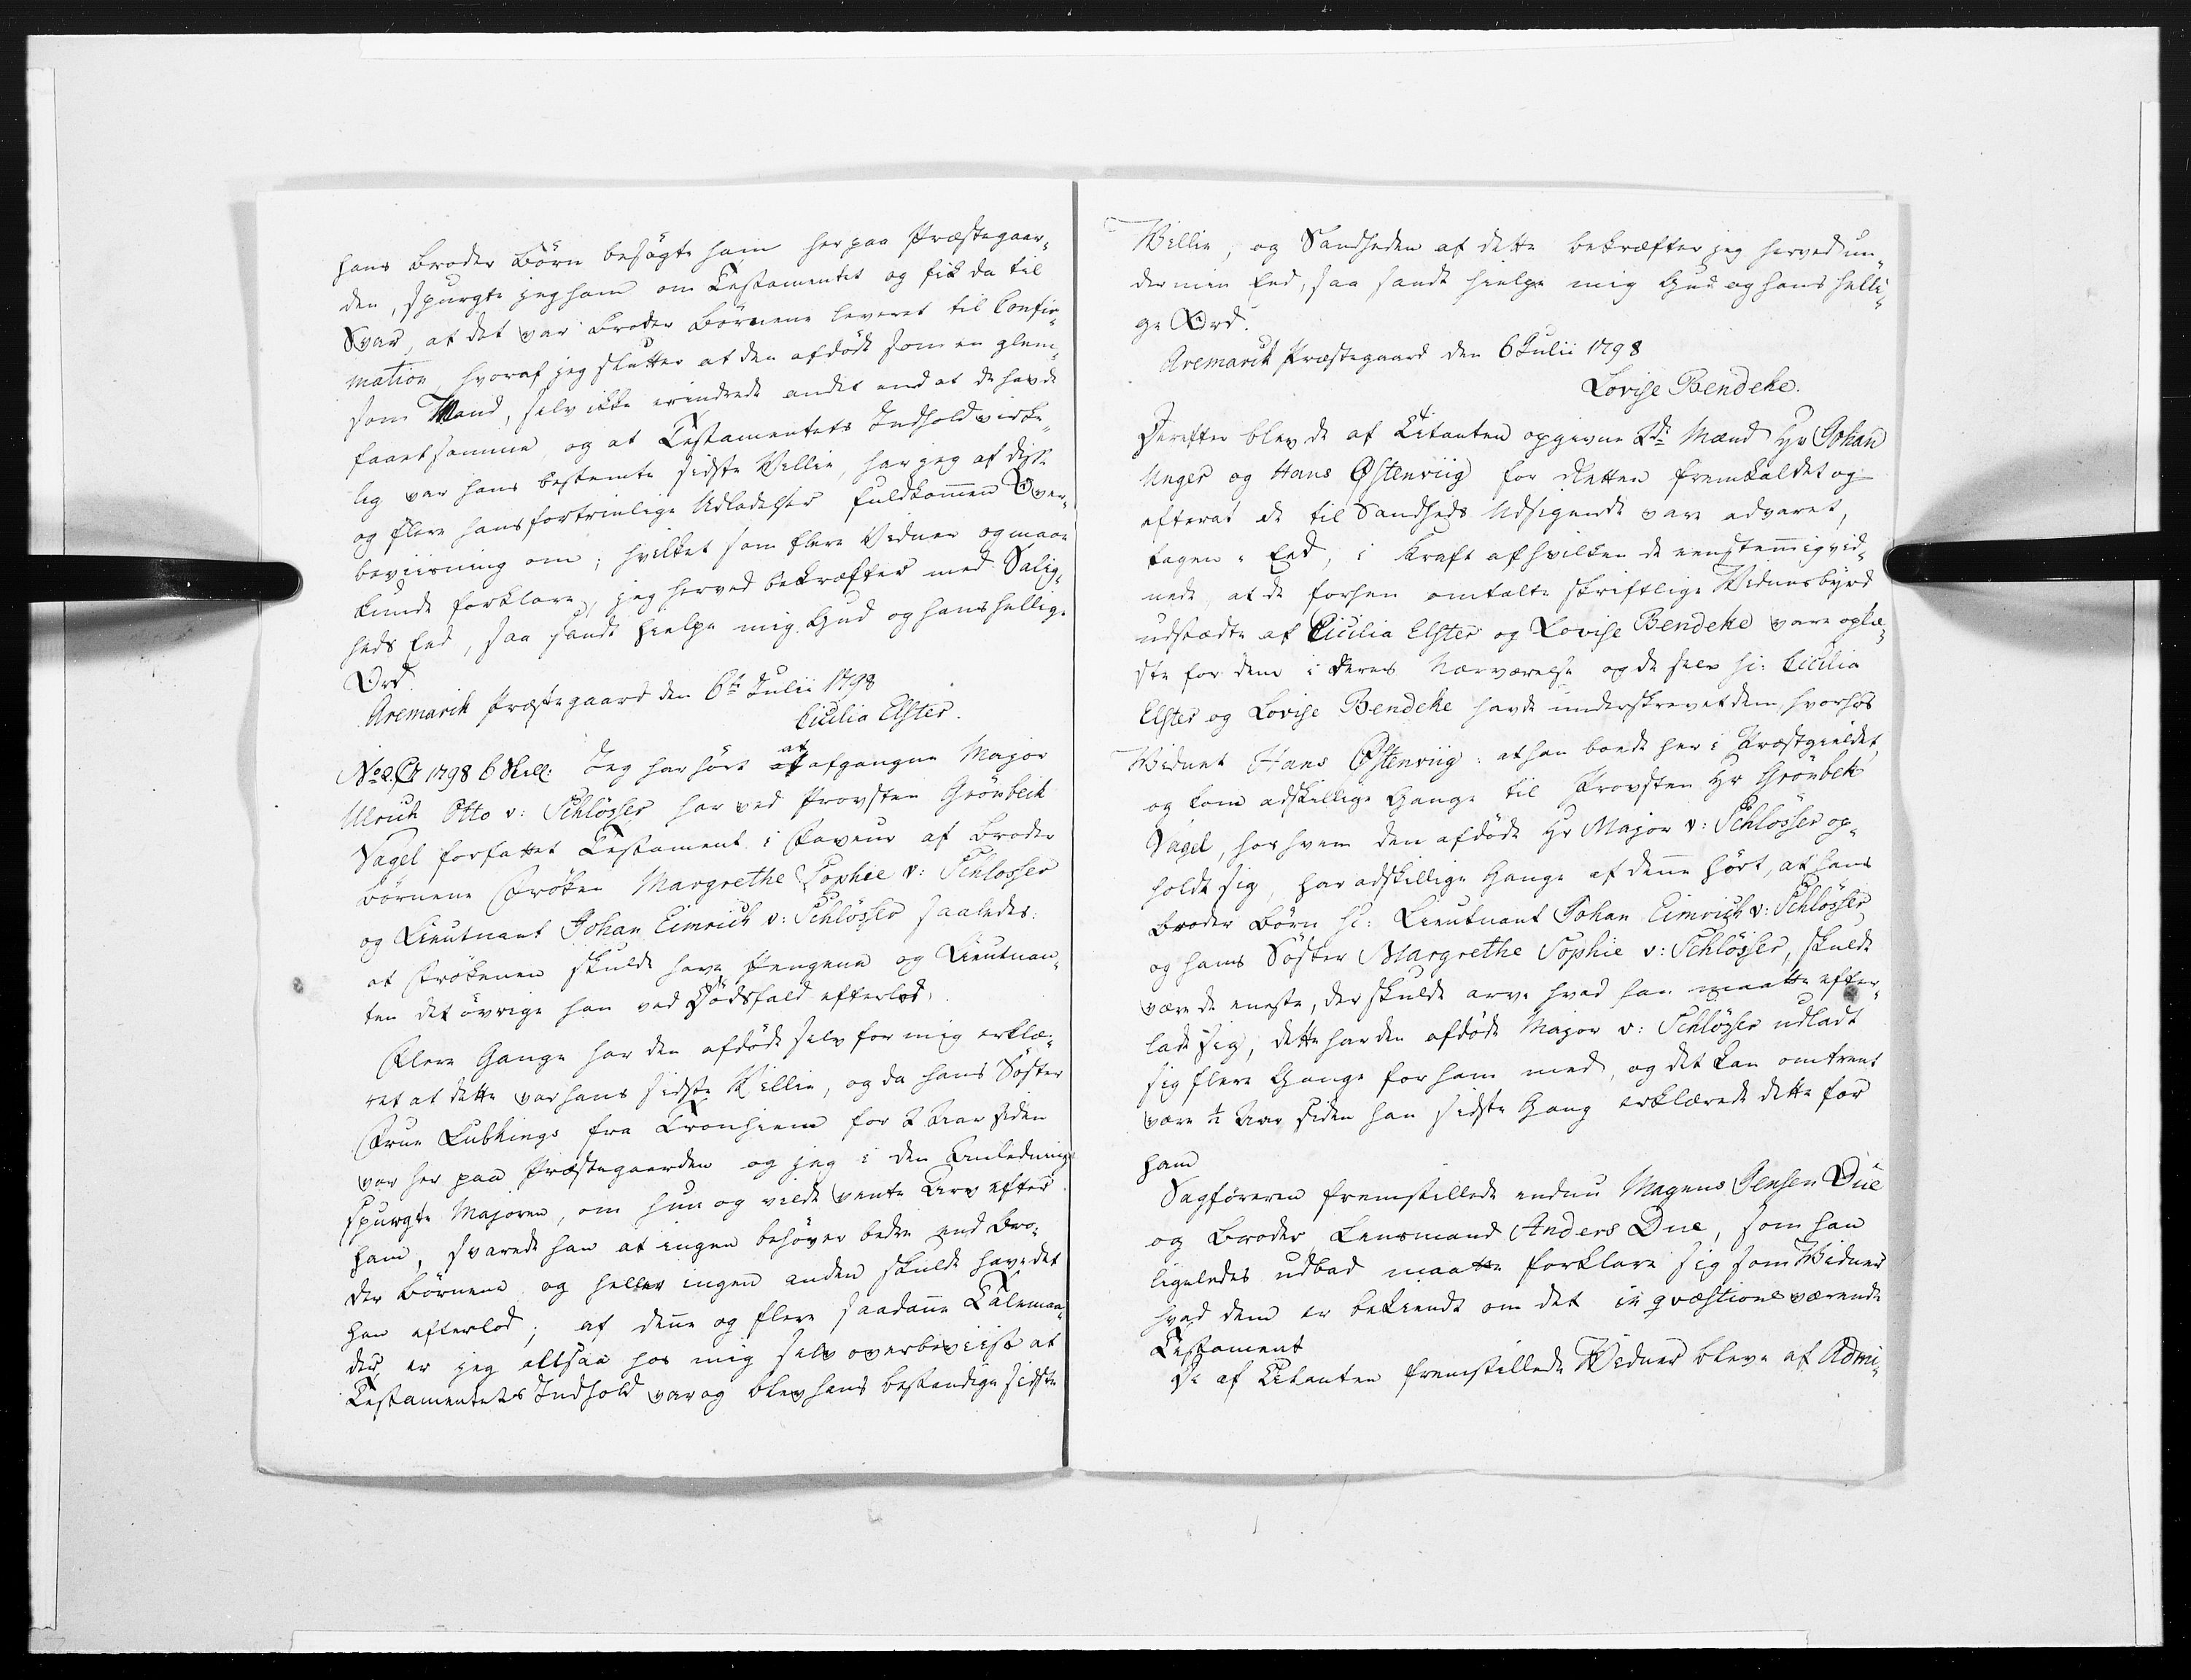 hans Broder Börn besögte ham her paa Præstegaar-
den, spurgte jeg ham om Testamentet og fik da til
Svar, at det var Broder Börnene leveret til Confir-
mation, hvoraf jeg slutter at den afdöde som en glem-
som Mand, selv ikke erindrede andet end at de havde
faaet samme, og at Testamentets Indhold virke-
lig var hans bestemte sidste Villie, har jeg af disse
og flere hans fortrinlige Udladelser fuldkommen Over-
beviisning om; hvilket som flere Vidner og maae
kunde forklare, jeg herved bekræfter med Salig-
heds Eed, saa sandt hielpe mig Gud og hans hellige
Ord.
Aremarch Præstegaard den 6te Julii 1798
Cicilia Elster.
No 2. Ct 1798 6 Skill: Jeg har hört at afgangne Major
Ulrich Otto v: Schlösser har ved Provsten Grönbech
Sagel forfattet Testament i Faveur af Broder
Börnene Fröken Margrethe Sophie v: Schlosser
og Lieutnant Johan Eimrich v: Schlösser saaledes:
at Frökenen skulde have Pengene og Lieutnan-
ten det övrige han ved Dödsfald efterlod.
Flere Gange har den afdöde selv for mig erklæ-
ret at dette var hans sidste Villie, og da hans Söster
Frue Lubkings fra Tronhiem for 2 Aar siden
var her paa Præstegaarden og jeg i den Anledning
spurgte Majoren, om hun og vilde vente Arv efter
ham, svarede han at ingen behöver bedre end Bro-
der Börnene og heller ingen anden skulde have det
han efterlod; af denne og flere saadanne Talemaa-
der, er jeg altsaa hos mig selv overbeviist at
Testamentets Indhold var og blev hans bestandige sidste
Villie, og Sandheden af dette bekræfter jeg herved un-
der min Eed, saa sandt hielpe mig Gud og hans helli-
ge Ord.
Aremarch Præstegaard den 6 Julii 1798
Lovise Bendeke.
Derefter blev de af Citanten opgivne 2de Mænd Hr Johan
Unger og Hans Østenviig for Retten fremkaldet og
efterat de til Sandheds Udsigende vare advaret,
tagen i Eed, i Kraft af hvilken de eenstemmig vid-
nede at de forhen omtalte skriftlige Vidnesbyrd
udstædte af Cicilia Elster og Lovise Bendeke vare oplæ-
ste for dem i deres Nærværelse og de selv sc: Cicilia
Elster og Lovise Bendeke havde underskrevet dem, hvorhos
Vidnet Hans Østenviig: at han boede her i Præstgieldet,
og kom adskillige Gange til Provsten Hr Grönbek
Sagel, hos hvem den afdöde Hr Major v: Schlösser op-
holdt sig, har adskillige Gange af denne hört, at hans
Broder Börn sc: Lieutnant Johan Eimrich v: Schlösser
og hans Söster Margrethe Sophie v: Schlösser, skulde
være de eneste, der skulde arve hvad han maatte efter-
lade sig, dette har den afdöde Major v: Schlösser udladt
sig flere Gange for ham med, og det kan omtrent
være ½ Aar siden han sidste Gang erklærede dette for
ham
Sagföreren fremstillede endnu Magnus Jensen Due
og Broder Lensmand Anders Due, som han
ligeledes udbad maatte forklare sig som Vidner
hvad dem er bekiendt om det in qvæstione værende
Testament
De af Citanten fremstillede Vidner bleve af Admi-